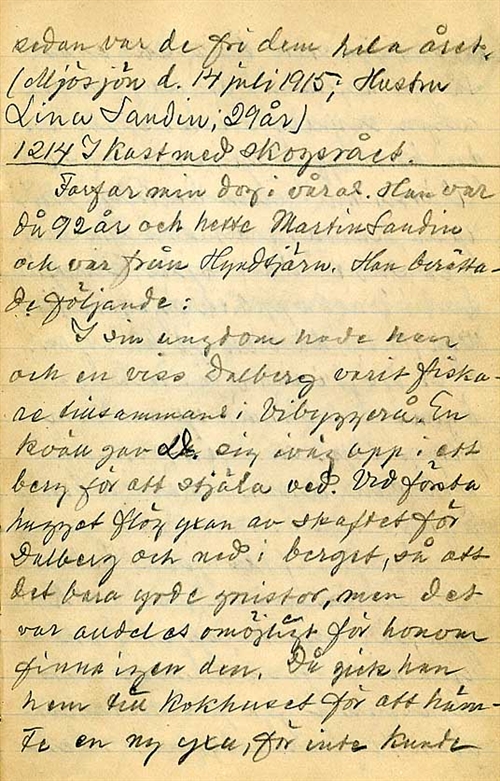 sedan var de fri dem hela året.
(Mjösjön d. 14 juli 1915; Hustru
Lina Sandin; 29 år)
1214 I kast med skogsrået.
Farfar min dog i våras. Han var
då 92 år och hette Martin Sandin
och var från Hundtjärn. Han berätta-
de följande:
I sin ungdom hade han
och en viss Dalberg varit fiska-
re tillsammans i Vibyggerå. En
kväll gav de sig iväg opp i ett
berg för att stjäla ved. Vid första
hugget flög yxan av skaftet för
Dalberg och ned i berget, så att
det bara yrde gnistor, men det
var alldeles omöjligt för honom
finna igen den. Då gick han
hem till kokhuset för att häm-
ta en ny yxa, för inte kunde